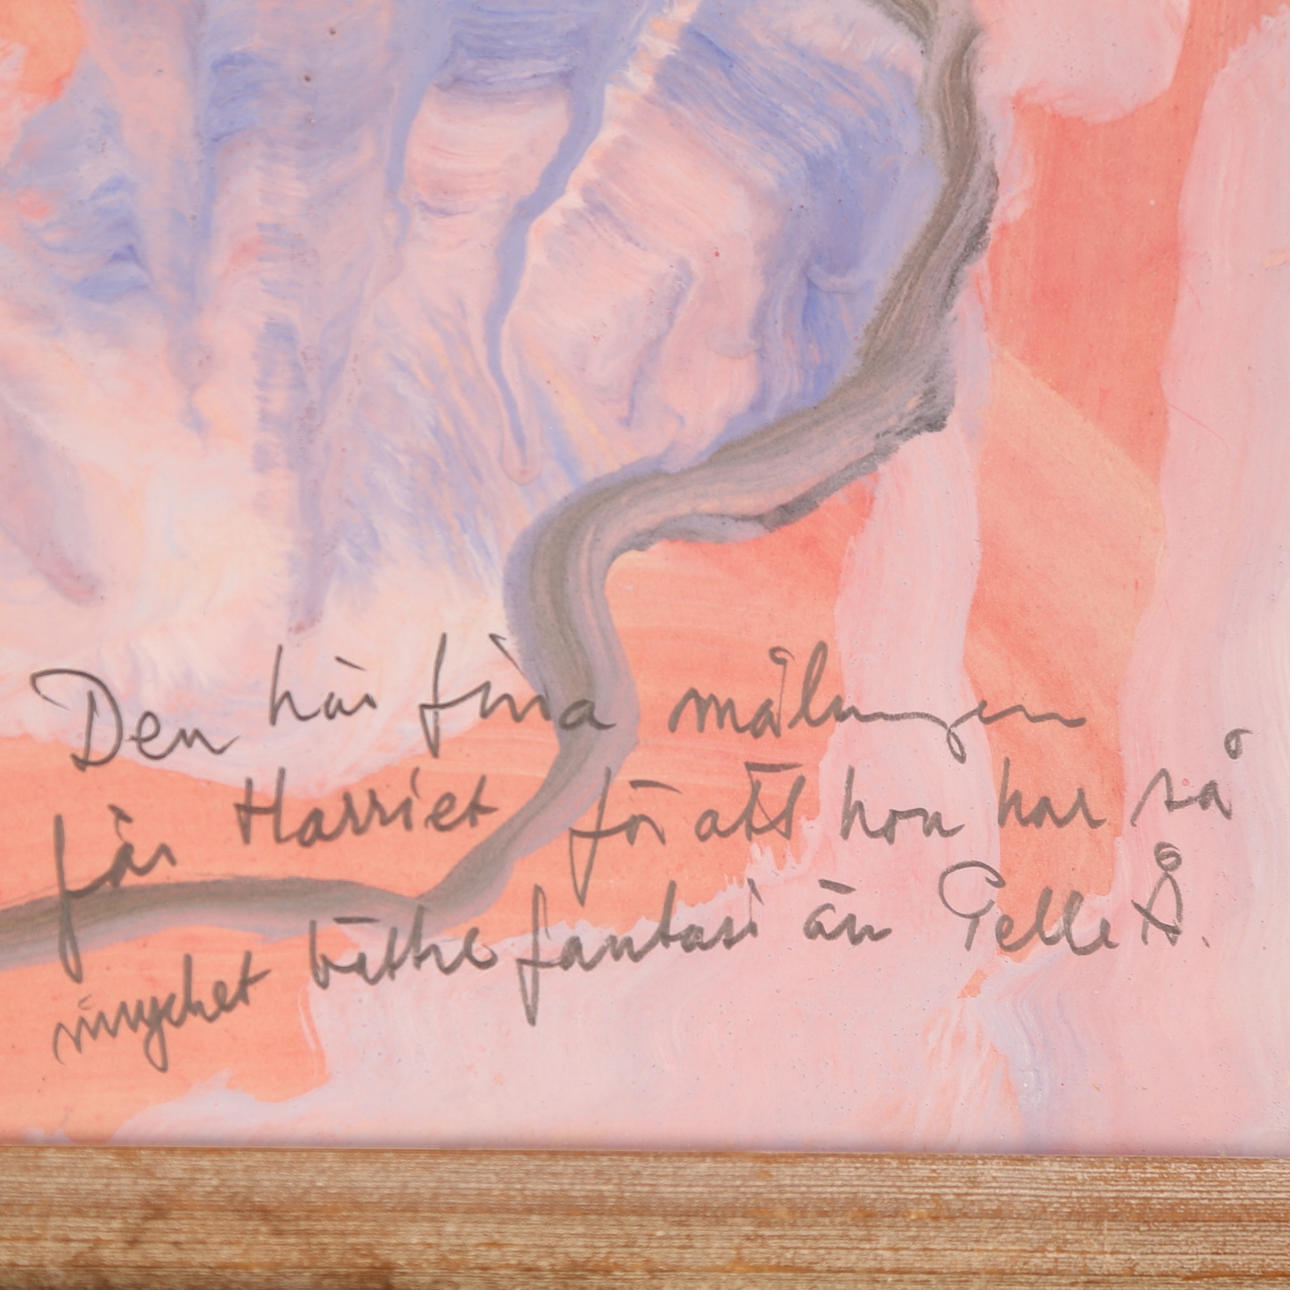 Den här fina målningen
får Harriet för att hon har så
mycket bättre fantasi än Pelle Å.